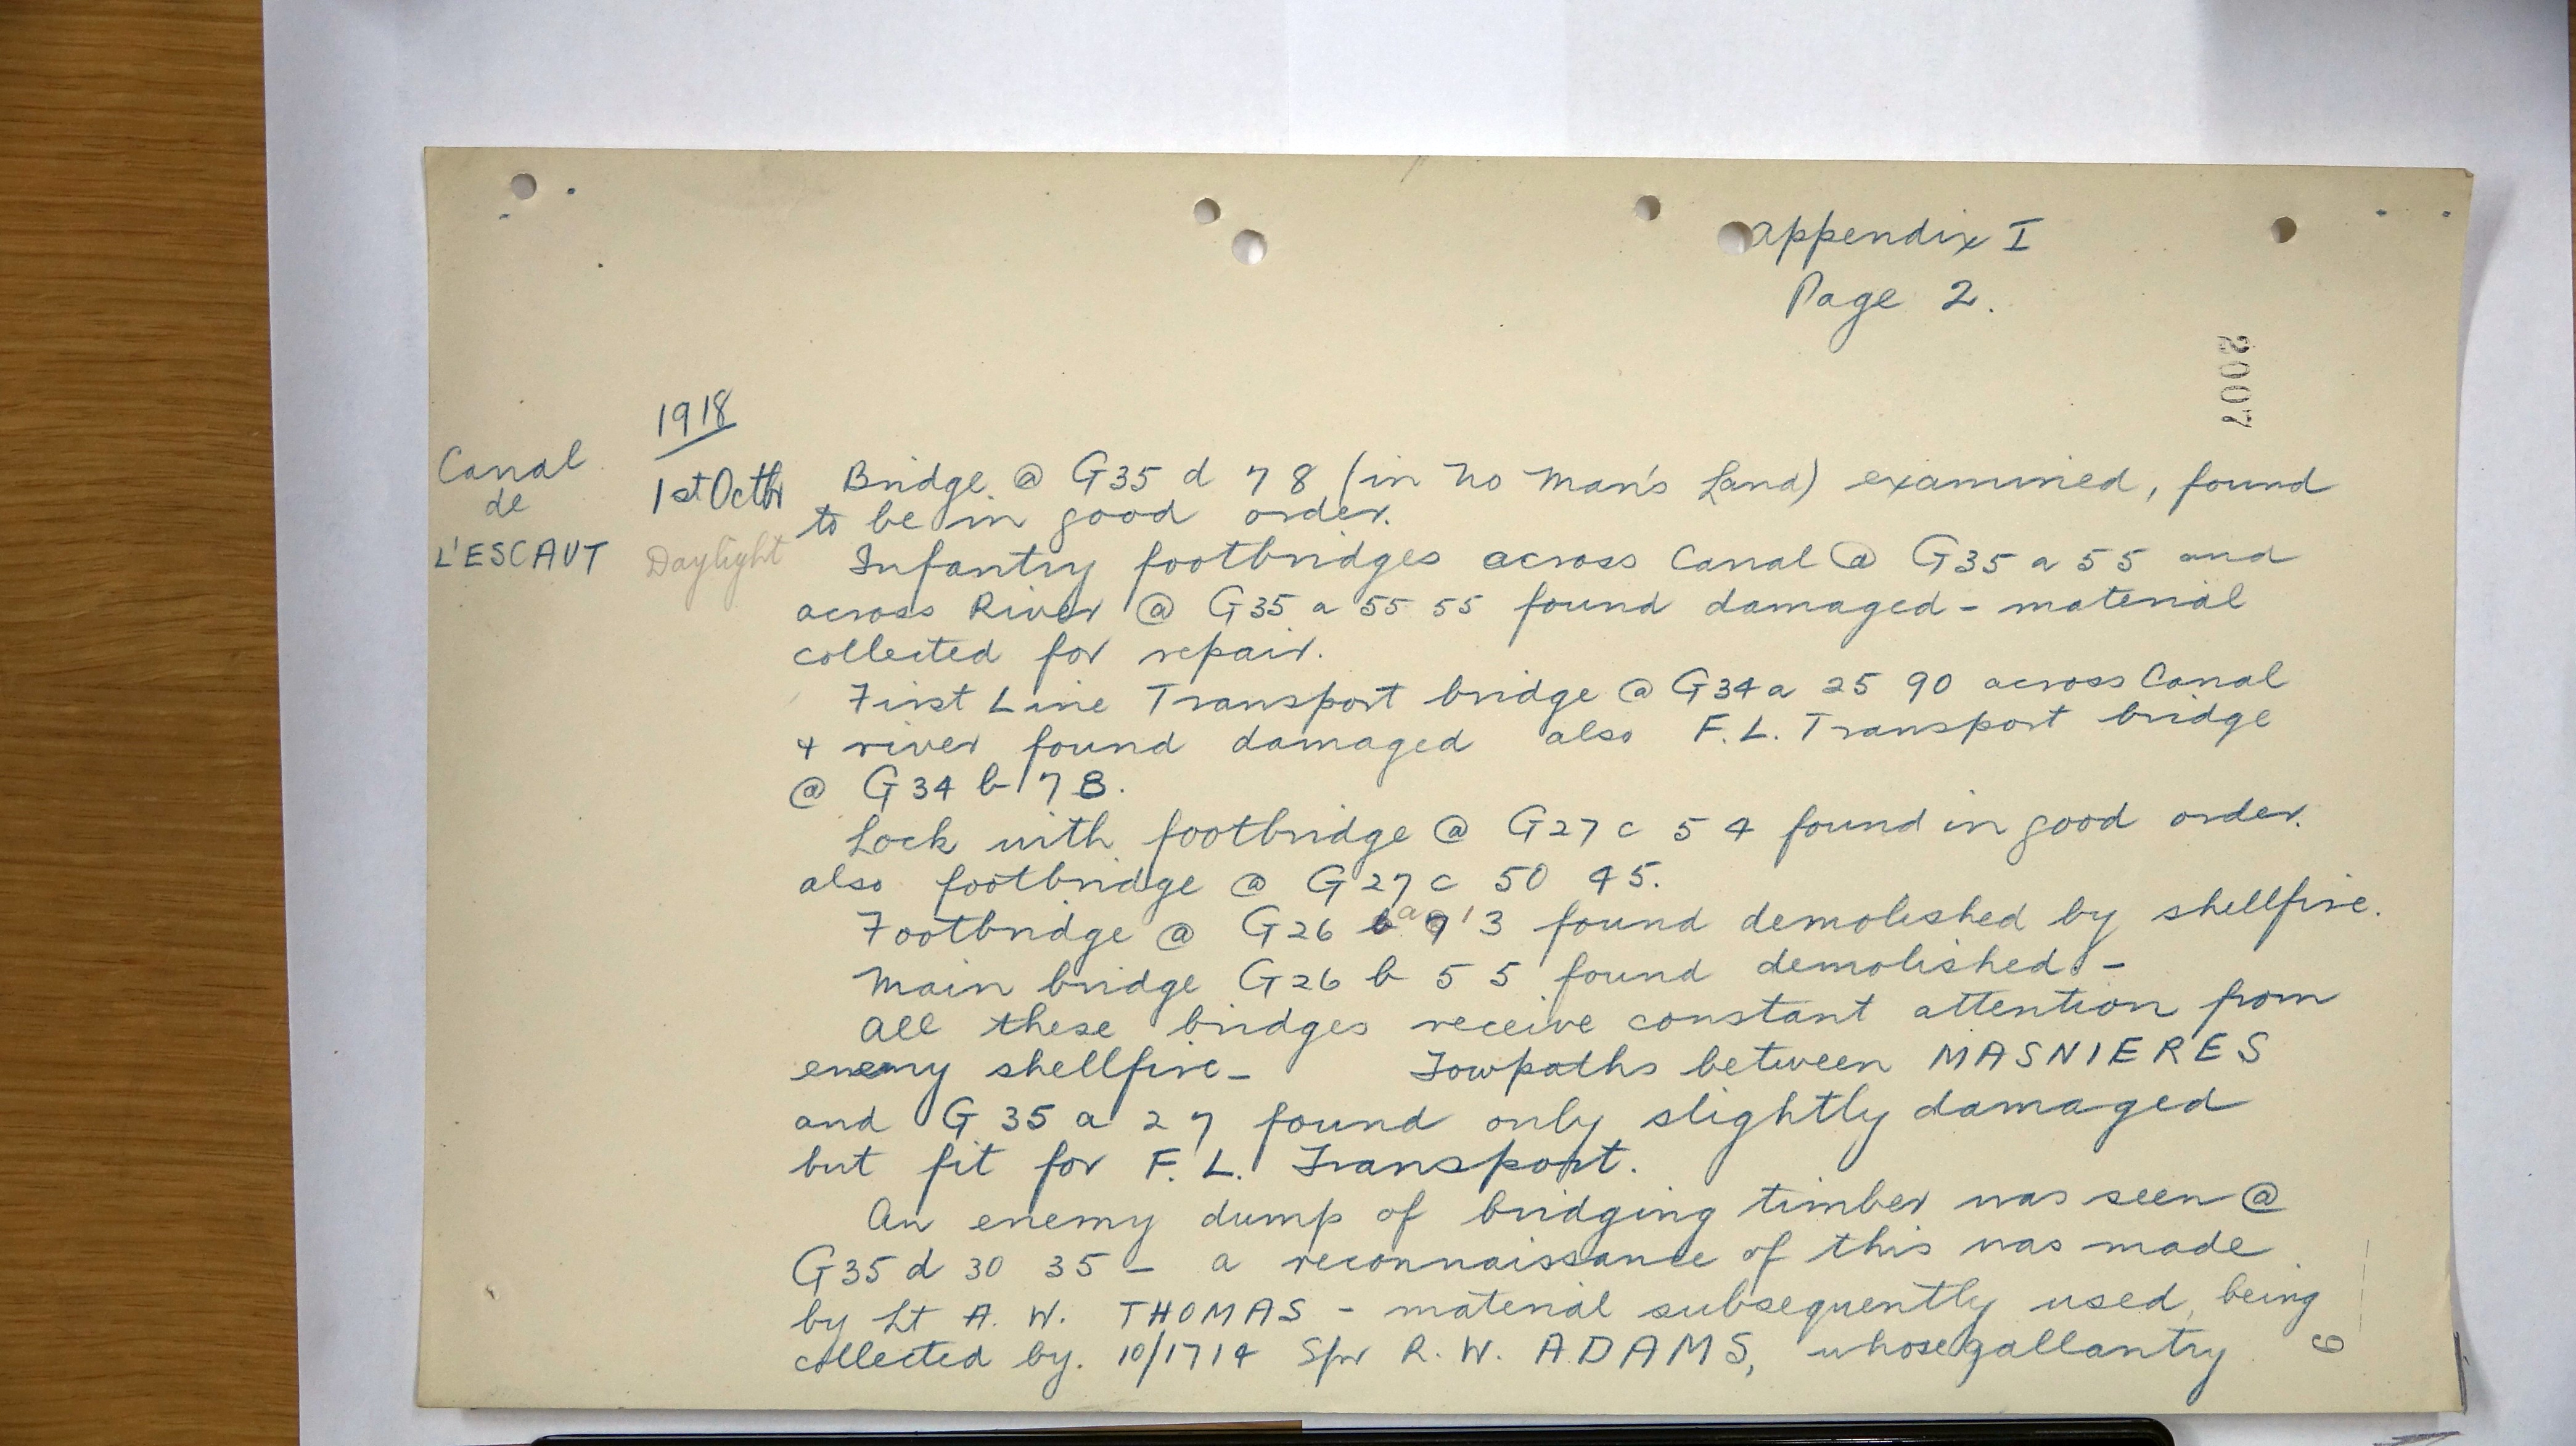 Appendix I
Page 2.
2007
1918
Canal
de
L'ESCAUT
1st Octbr
Daylight
Bridge @ G35 d 7 8 (in No Man's Land) examined, found
to be in good order.
Infantry footbridges across Canal @ G35 a 5 5 and
across River @ G35 a 55 55 found damaged - material
collected for repair.
First Line Transport bridge @ G34 a 25 90 across Canal
+ river found damaged also F.L. Transport bridge
@ G34 b 7 8.
Lock with footbridge @ G27 c 5 4 found in good order.
also footbridge @ G27 c 50 45.
Footbridge @ G26 a 3 found demolished by shellfire.
Main bridge G26 b 5 5 found demolished. -
All these bridges receive constant attention from
enemy shellfire - Towpaths between MASNIERES
and G 35 a 2 7 found only slightly damaged
but fit for F. L. Transport.
An enemy dump of bridging timber was seen @
G35 d 30 35 - a reconnaissance of this was made
by Lt A. W. THOMAS - material subsequently used, being
collected by. 10/1714 Spr R. W. ADAMS, whose gallantry